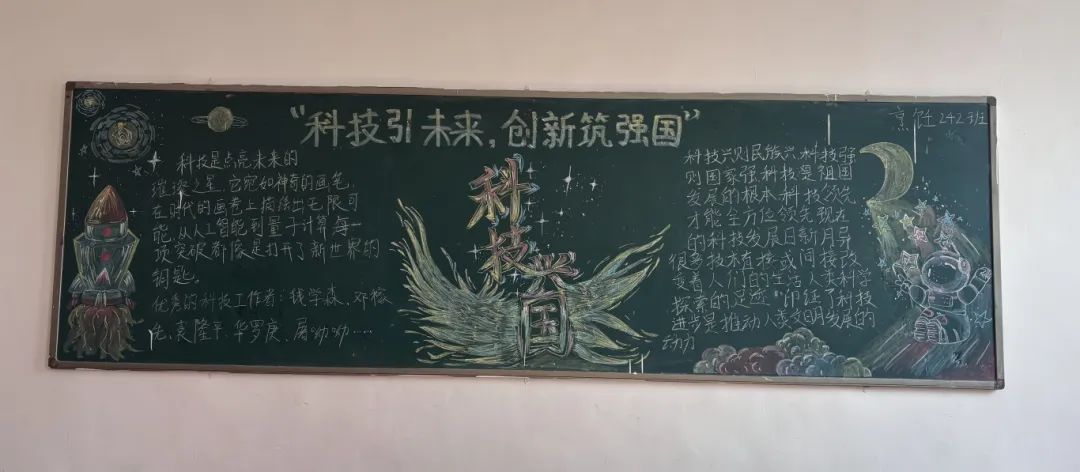 "科技引未来,创新筑强国"
烹饪242班
科技是点亮未来的
璀璨之星,它宛如神奇的画笔,
在时代的画卷上描绘出无限可
能,从人工智能到量子计算每一
项突破都像是打开了新世界的
钥匙。
优秀的科技工作者:钱学森、邓稼
先、袁隆平、华罗庚、屠呦呦……
科技兴国
科技兴则民族兴,科技强
则国家强科技是祖国
发展的根本科技领先
才能全方位领先现在
的科技发展日新月异
很多技术直接或间接改
变着人们的生活人类科学
探索的足迹"印征了科技
进步是推动人类文明发展的
动力